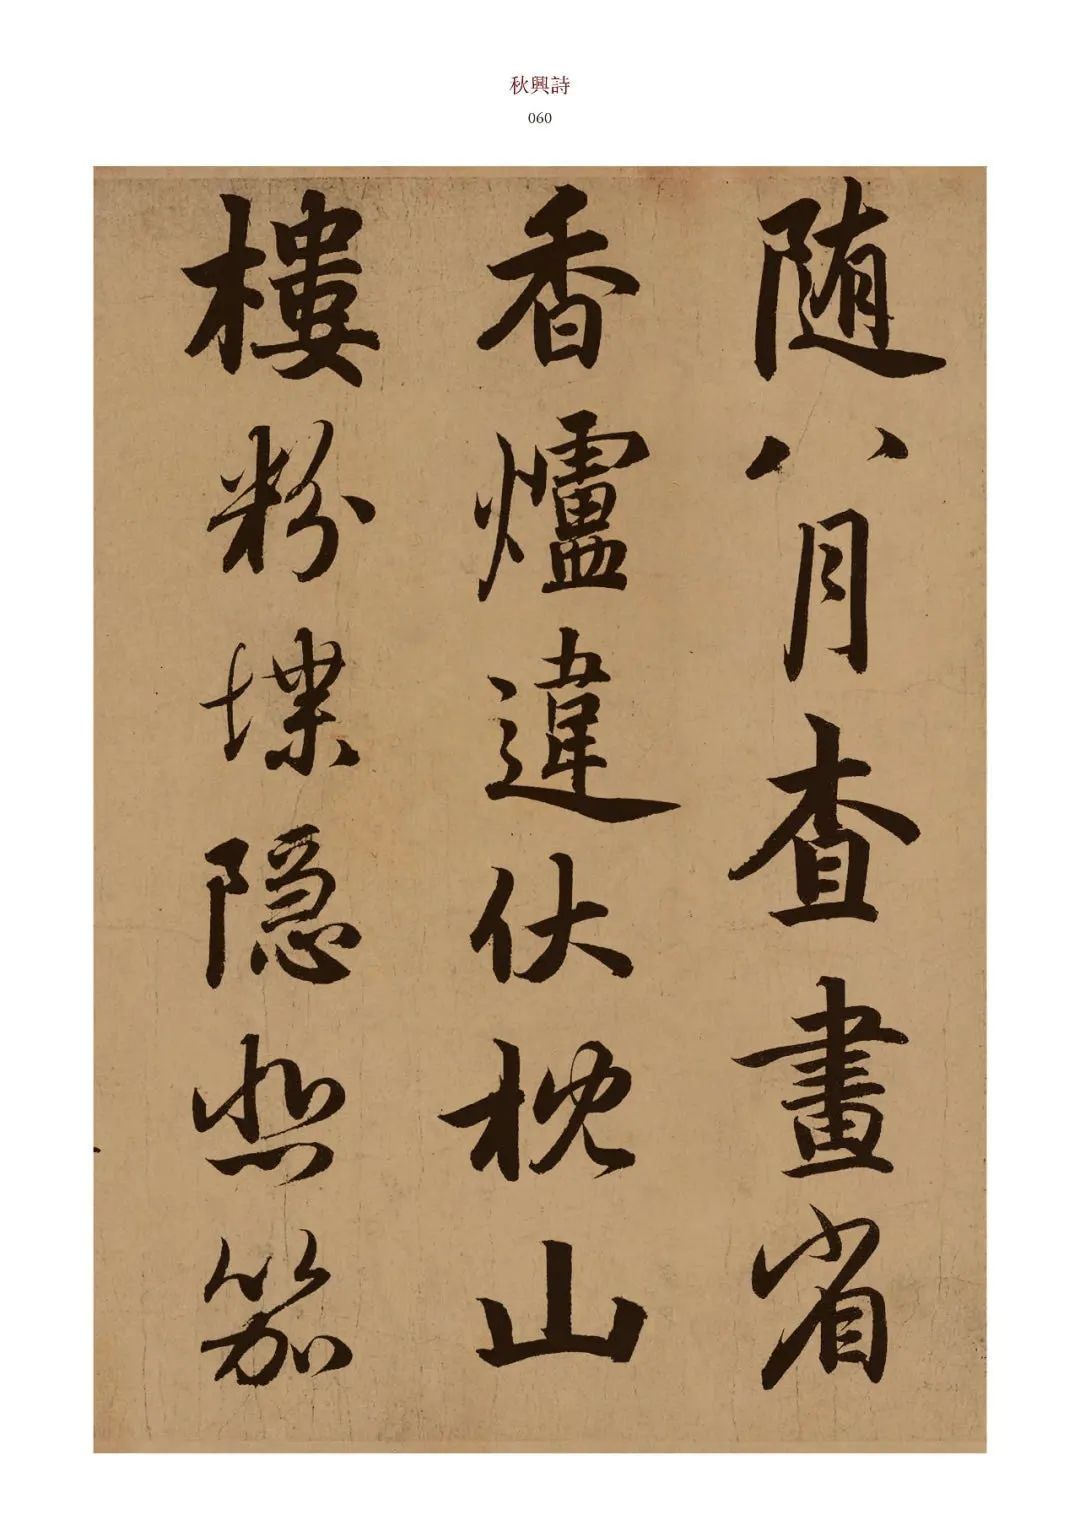 秋興詩
060
随八月查畫省
香爐違伏枕山
樓粉堞隱悲笳